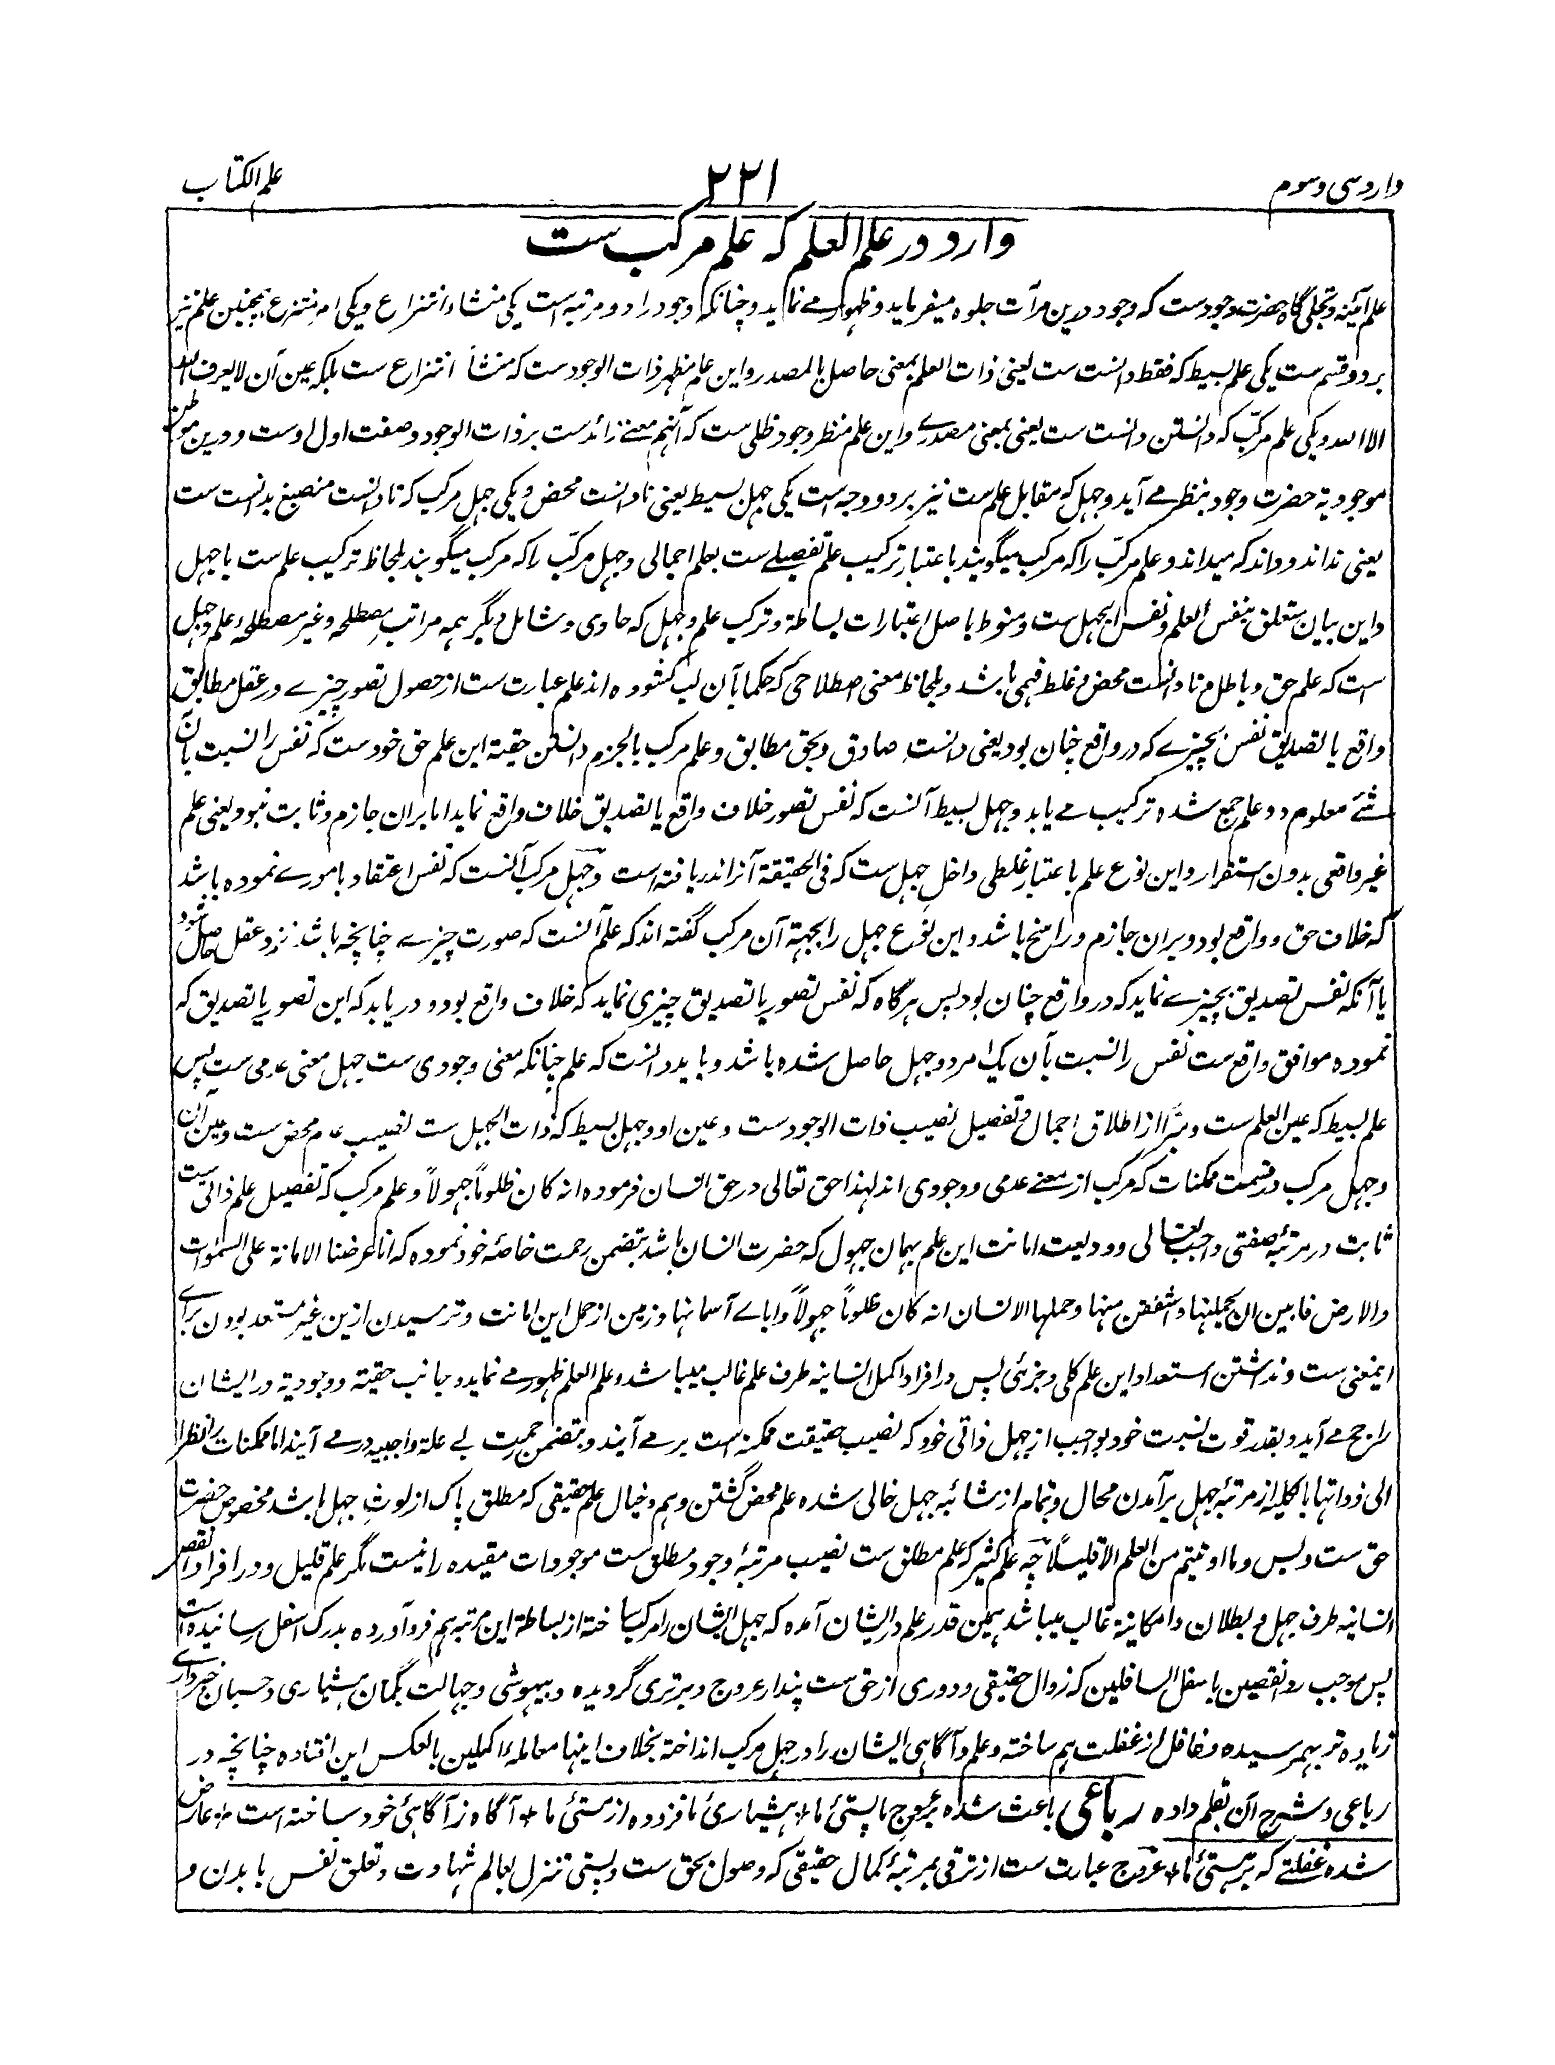 وارد سی و سوم
۲۲۱
علم الکتاب
وارد در علم العلم که علم مرکب ست
علم آئینه و تجلی گاه حضرت وجود ست که وجود درین مرآت جلوه میفرماید و ظهور مے نماید و چنانکه وجود را دو مرتبه است یکی منشاء انتزاع و یکی امر منتزع همچنین علم نیز
بر دو قسم ست یکی علم بسیط که فقط دانست ست یعنی ذات العلم بمعنی حاصل بالمصدر و این علم مظهر ذات الوجود ست که منشأ انتزاع ست بلکه عین آن لا یعرف الله
الا الله و یکی علم مرکّب که دانستن دانست ست یعنی بمعنی مصدرے و این علم منظر وجود ظلی ست که آنهم معنے زائد ست بر ذات الوجود و صفت اول اوست و درین موطن
موجودیة حضرت وجود بنظر مے آید و جهل که مقابل علم ست نیز بر دو وجه است یکی جهل بسیط یعنی نادانست محض و یکی جهل مرکب که نادانست منصبغ بدانست ست
یعنی نداند و داند که میداند و علم مرکّب را که مرکب میگویند باعتبار ترکیب علم تفصیلے ست بعلم اجمالی و جهل مرکّب را که مرکب میگویند بلحاظ ترکیب علم ست با جهل
و این بیان متعلق بنفس العلم و نفس الجهل ست و منوط باصل اعتبارات بساطة و ترکب علم و جهل که حاوی و شامل دیگر همه مراتب مصطلحه و غیر مصطلحۀ علم و جهل
است که علم حق و باطل و نادانست محض و غلط فهمی باشد و بلحاظ معنی اصطلاحی که حکما بآن لب کشوده اند علم عبارت ست از حصول تصور چیزے در عقل مطابق
واقع یا تصدیق نفس بچیزے که در واقع چنان بود یعنی دانست صادق و بحق مطابق و علم مرکب بالجزم دانستن حقیة این علم حق خود ست که نفس را نسبت بآن
شئے معلوم دو علم جمع شده ترکیب مے یابد و جهل بسیط آنست که نفس تصور خلاف واقع یا تصدیق خلاف واقع نماید اما بران جازم و ثابت نبود یعنی علم
غیر واقعی بدون استقرار و این نوع علم باعتبار غلطی داخل جهل ست که فی الحقیقة آنرا ندریافته است و جهل مرکب آنست که نفس اعتقاد بامورے نموده باشد
که خلاف حق و واقع بود و بران جازم و راسخ باشد و این نوع جهل را بجهة آن مرکب گفته اند که علم آنست که صورت چیزے چنانچه باشد نزد عقل حاصل شود
یا آنکه نفس تصدیق بچیزے نماید که در واقع چنان بود پس هرگاه که نفس تصور یا تصدیق چیزی نماید که خلاف واقع بود و دریابد که این تصور یا تصدیق که
نموده موافق واقع ست نفس را نسبت بآن یک امر دو جهل حاصل شده باشد و باید دانست که علم چنانکه معنی وجودی ست جهل معنی عدمی ست پس
علم بسیط که عین العلم ست و مبرّا از اطلاق اجمال و تفصیل نصیب ذات الوجود ست و عین او و جهل بسیط که ذات الجهل ست نصیب عدم محض ست و عین آن
و جهل مرکب در قسمت ممکنات که مرکب از معنے عدمی و وجودی اند لهذا حق تعالی در حق انسان فرموده انه کان ظلوماً جهولاً و علم مرکب که تفصیل علم ذاتی ست
ثابت در مرتبۀ صفتی واجب تعالی و ودیعت امانت این علم بهمان جهول که حضرت انسان باشد بتضمن رحمت خاصۀ خود نموده که انا عرضنا الامانة علی السموات
والارض فابین ان یحملنها و اشفقن منها و حملها الانسان انه کان ظلوماً جهولاً و اباے آسمانها و زمین از حمل این امانت و ترسیدن ازین غیر مستعد بودن براے
اینمعنی ست و نداشتن استعداد این علم کلی و جزئی پس در افراد اکمل انسانیه طرف علم غالب میباشد و علم العلم ظهور مے نماید و جانب حقیة و وجودیة در ایشان
راجح مے آید و بقدر قوت نسبت خود بواجب از جهل ذاتی خود که نصیب حقیقت ممکنه است برمے آیند و بتضمن رحمت بے علة واجبیه درمے آیند اما ممکنات را نظراً
الی ذواتها بالکلیه از مرتبۀ جهل برآمدن محال و تمام از شائبه جهل خالی شده علم محض گشتن وهم و خیال علم حقیقی که مطلق پاک از لوث جهل باشد مخصوص حضرت
حق ست و بس و ما اوتیتم من العلم الا قلیلاً چه علم کثیر که علم مطلق ست نصیب مرتبۀ وجود مطلق ست موجودات مقیده را نیست مگر علم قلیل و در افراد انقص
انسانیه طرف جهل و بطلان و امکانیة غالب میباشد همین قدر علم در ایشان آمده که جهل ایشان را مرکب ساخته از بساطة این مرتبه هم فرو آورده بدرک اسفل رسانیده است
پس موجب رد ناقصین باسفل السافلین که زوال حقیقی و دوری از حق ست پندار عروج و برتری گردیده و بیهوشی و جهالت بگمان هشیاری و حسبان خبرداری
زیاده تر بهمرسیده و غافل از غفلت هم ساخته و علم و آگاهی ایشان را در جهل مرکب انداخته بخلاف اینها معامله کاملین بالعکس این افتاده چنانچه در
رباعی و شرح آن بقلم داده رباعی باعث شده بر عروج ما پستیٔ ما * هشیاریٔ ما فزوده از مستیٔ ما * آگاه ز آگاهیٔ خود ساخته است * عارض
شده غفلتے که بر هستیٔ ما * عروج عبارت ست از ترقی بمرتبۀ کمال حقیقی که وصول بحق ست و پستی تنزل بعالم شهادت و تعلق نفس با بدن و